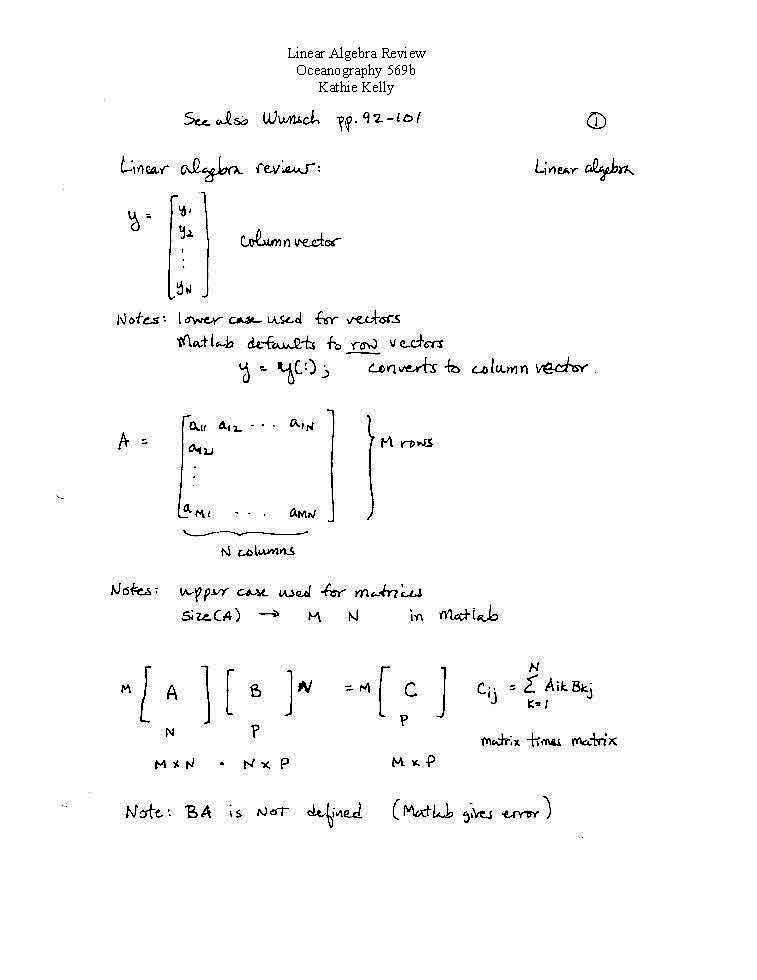 Linear Algebra Review
Oceanography 569b
Kathie Kelly
See also Wunsch pp. 92-101 ①
Linear algebra review: Linear algebra
y = [y1 y2 ⋮ yN] column vector
Notes: lower case used for vectors
Matlab defaults to row vectors
y = y(:); converts to column vector.
A = [a11 a12 ... a1N
a12
⋮
aM1 ... aMN] } M rows
N columns
Notes: upper case used for matrices
size(A) → M N in Matlab
M [A] [B] N = M [C] Cij = N Σ K=1 Aik Bkj
N P P
matrix times matrix
M x N • N x P M x P
Note: BA is NOT defined (Matlab gives error)